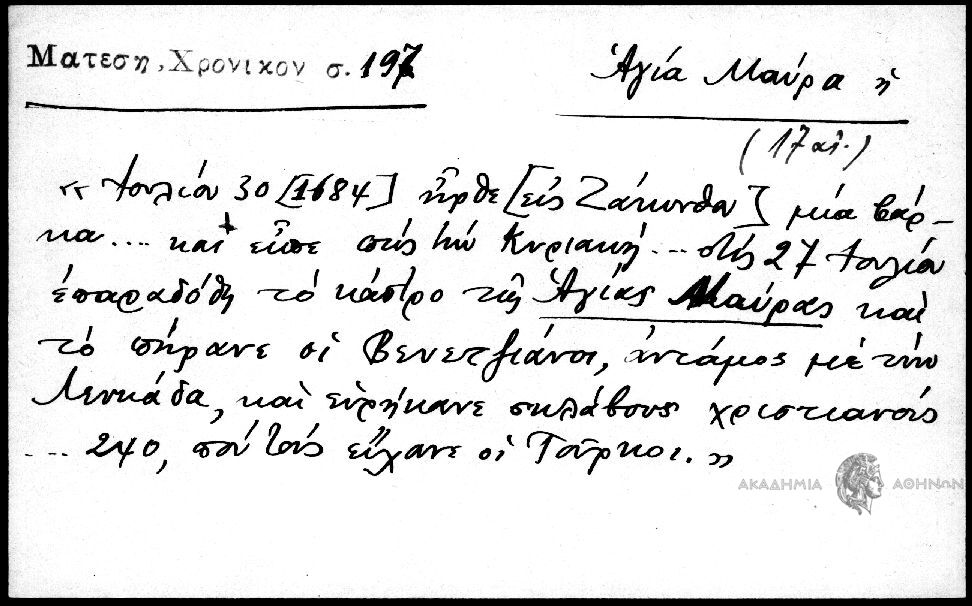 Ματεση, Χρονικον σ. 197
Ἁγία Μαύρα ἡ
(17 αἰ.)
« Ἰουλίου 30 [1684] ἦρθε [εἰς Ζάκυνθον] μία βάρ-
κα... καὶ εἶπε πὼς τὴν Κυριακὴ... στὶς 27 Ἰουλίου
ἐπαραδόθη τὸ κάστρο τῆς Ἁγίας Μαύρας καὶ
τὸ πήρανε οἱ Βενετζιάνοι, ἀντάμος μὲ τὴν
Λευκάδα, καὶ εὑρήκανε σκλάβους χριστιανοὺς
... 240, ποὺ τοὺς εἴχανε οἱ Τοῦρκοι. »
ΑΚΑΔΗΜΙΑ ΑΘΗΝΩΝ